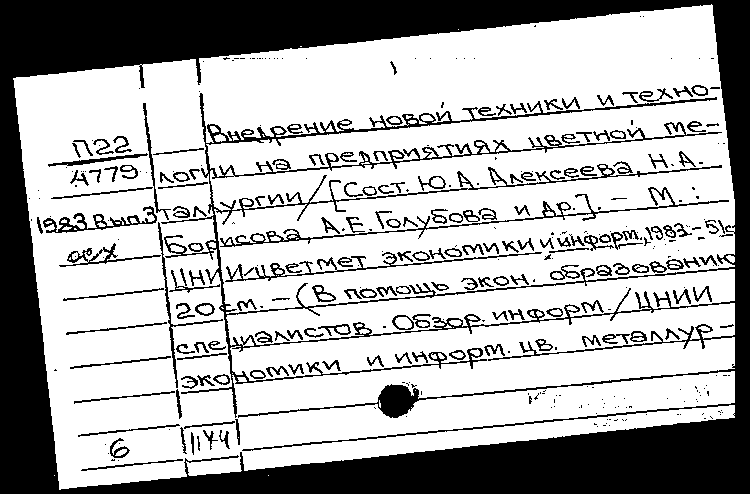 Внедрение новой техники и техно-
П22
4779
логии на предприятиях цветной ме-
1983 Вып.3
таллургии / [Сост. Ю.А. Алексеева, Н.А.
Борисова, А.Е. Голубова и др.]. – М.:
ЦНИИцветмет экономики и информ, 1983. – 51с.
20 см. – (В помощь экон. образованию
специалистов. Обзор. информ. / ЦНИИ
экономики и информ. цв. металлур-
6
1144